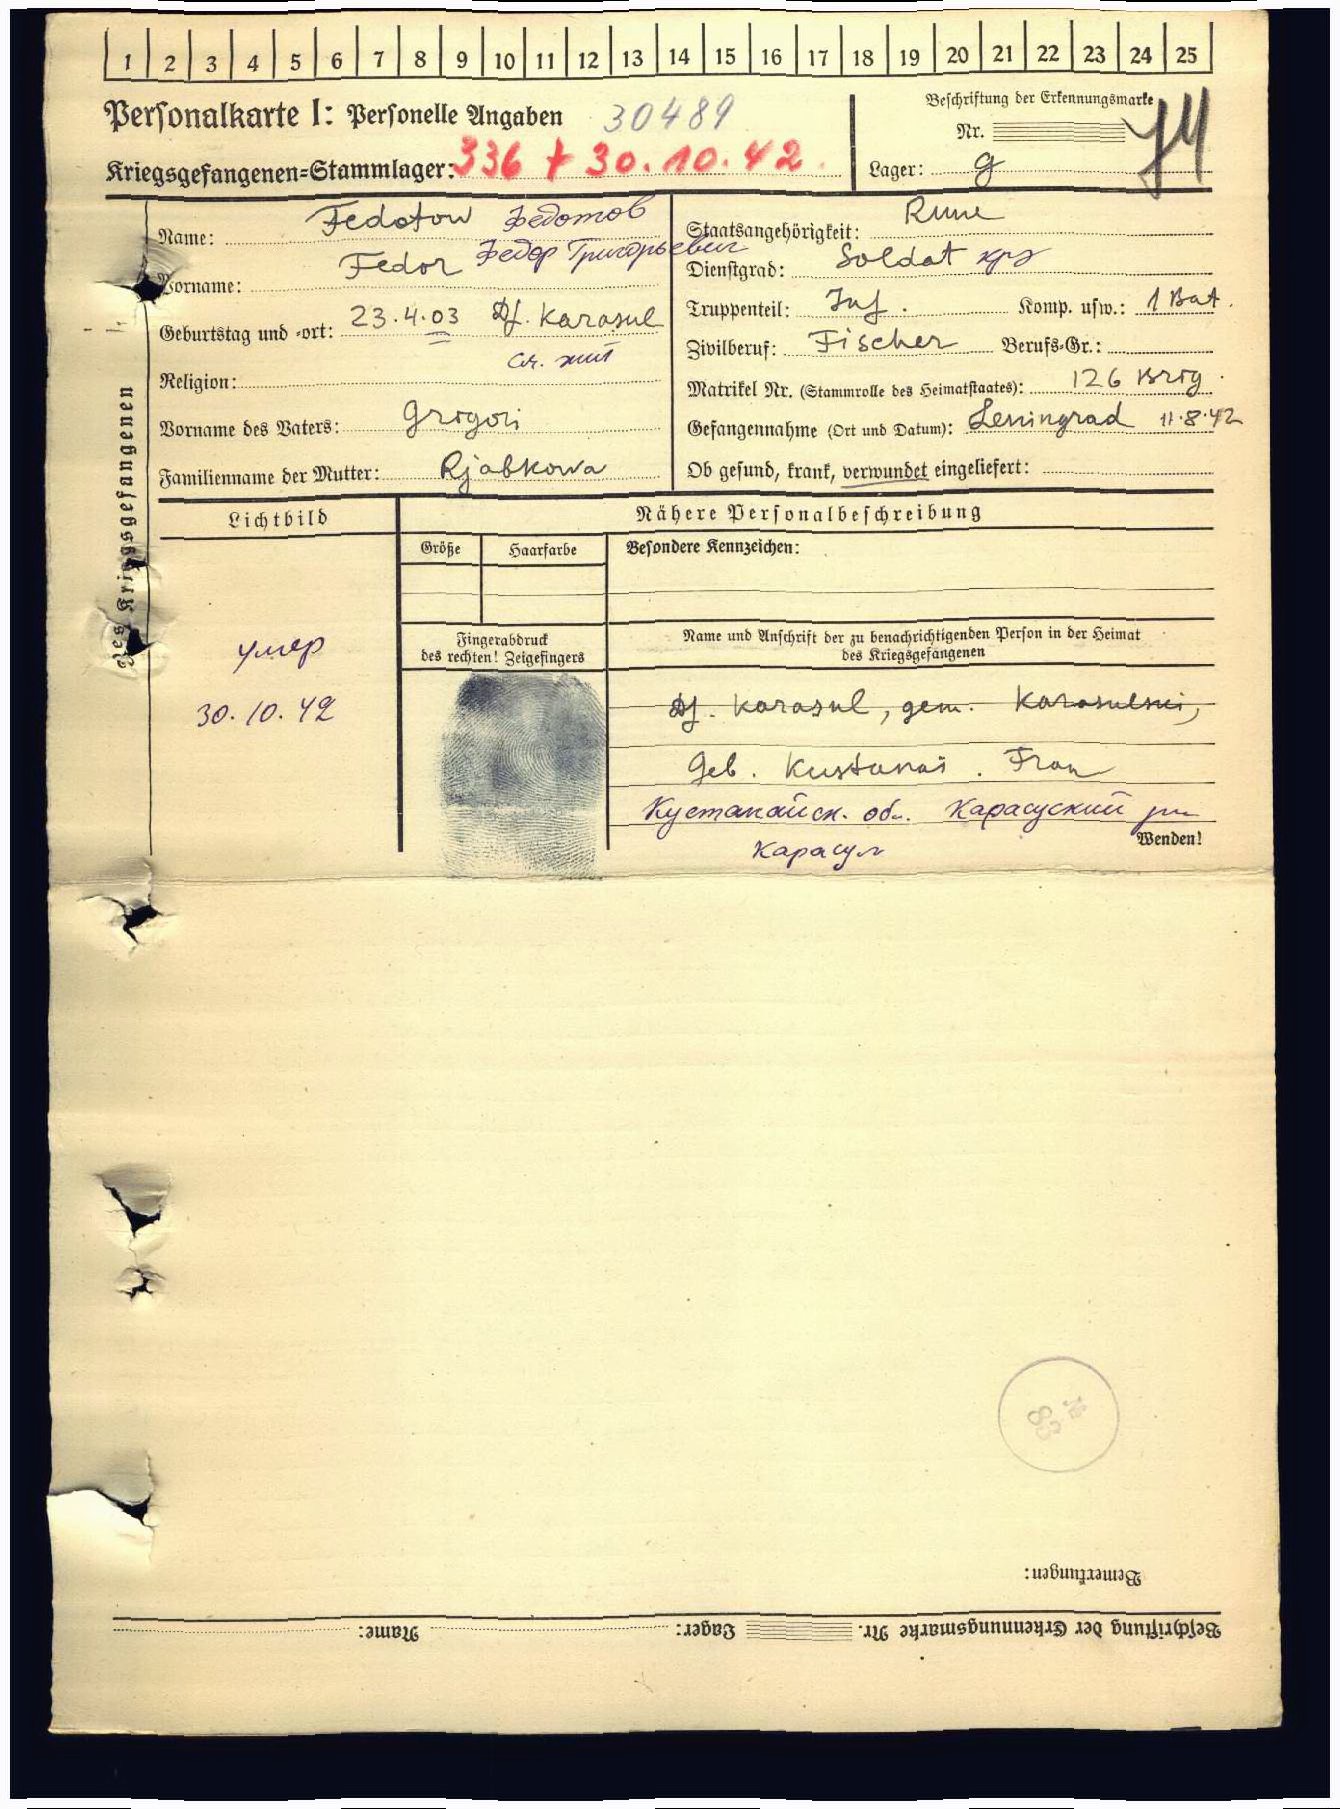 1 2 3 4 5 6 7 8 9 10 11 12 13 14 15 16 17 18 19 20 21 22 23 24 25
Personalkarte I: Personelle Angaben 30489
Kriegsgefangenen=Stammlager: 336 + 30.10.42.
Beschriftung der Erkennungsmarke
Nr.
Lager: g
Name: Fedotow Федотов
Vorname: Fedor Федор Григорьевич
Geburtstag und -ort: 23.4.03 Df. Karasul
Religion:
Vorname des Vaters: Grigori
Familienname der Mutter: Rjabkowa
Staatsangehörigkeit: Russe
Dienstgrad: Soldat кр
Truppenteil: Inf. Komp. usw.: 1 Bat.
Zivilberuf: Fischer Berufs-Gr.:
Matrikel Nr. (Stammrolle des Heimatstaates): 126 Brig.
Gefangennahme (Ort und Datum): Leningrad 11.8.42
Ob gesund, krank, verwundet eingeliefert:
Des Kriegsgefangenen
Lichtbild
умер
30.10.42
Nähere Personalbeschreibung
Größe Haarfarbe Besondere Kennzeichen:
Fingerabdruck
des rechten! Zeigefingers
Name und Anschrift der zu benachrichtigenden Person in der Heimat
des Kriegsgefangenen
Df. Karasul, gem. Karasulski,
Geb. Kustanai. Frau
Кустанайск. обл. Карасуский
Wenden!
Карасул
№
83
Bemerkungen:
Beschriftung der Erkennungsmarke Nr. Lager: Name: